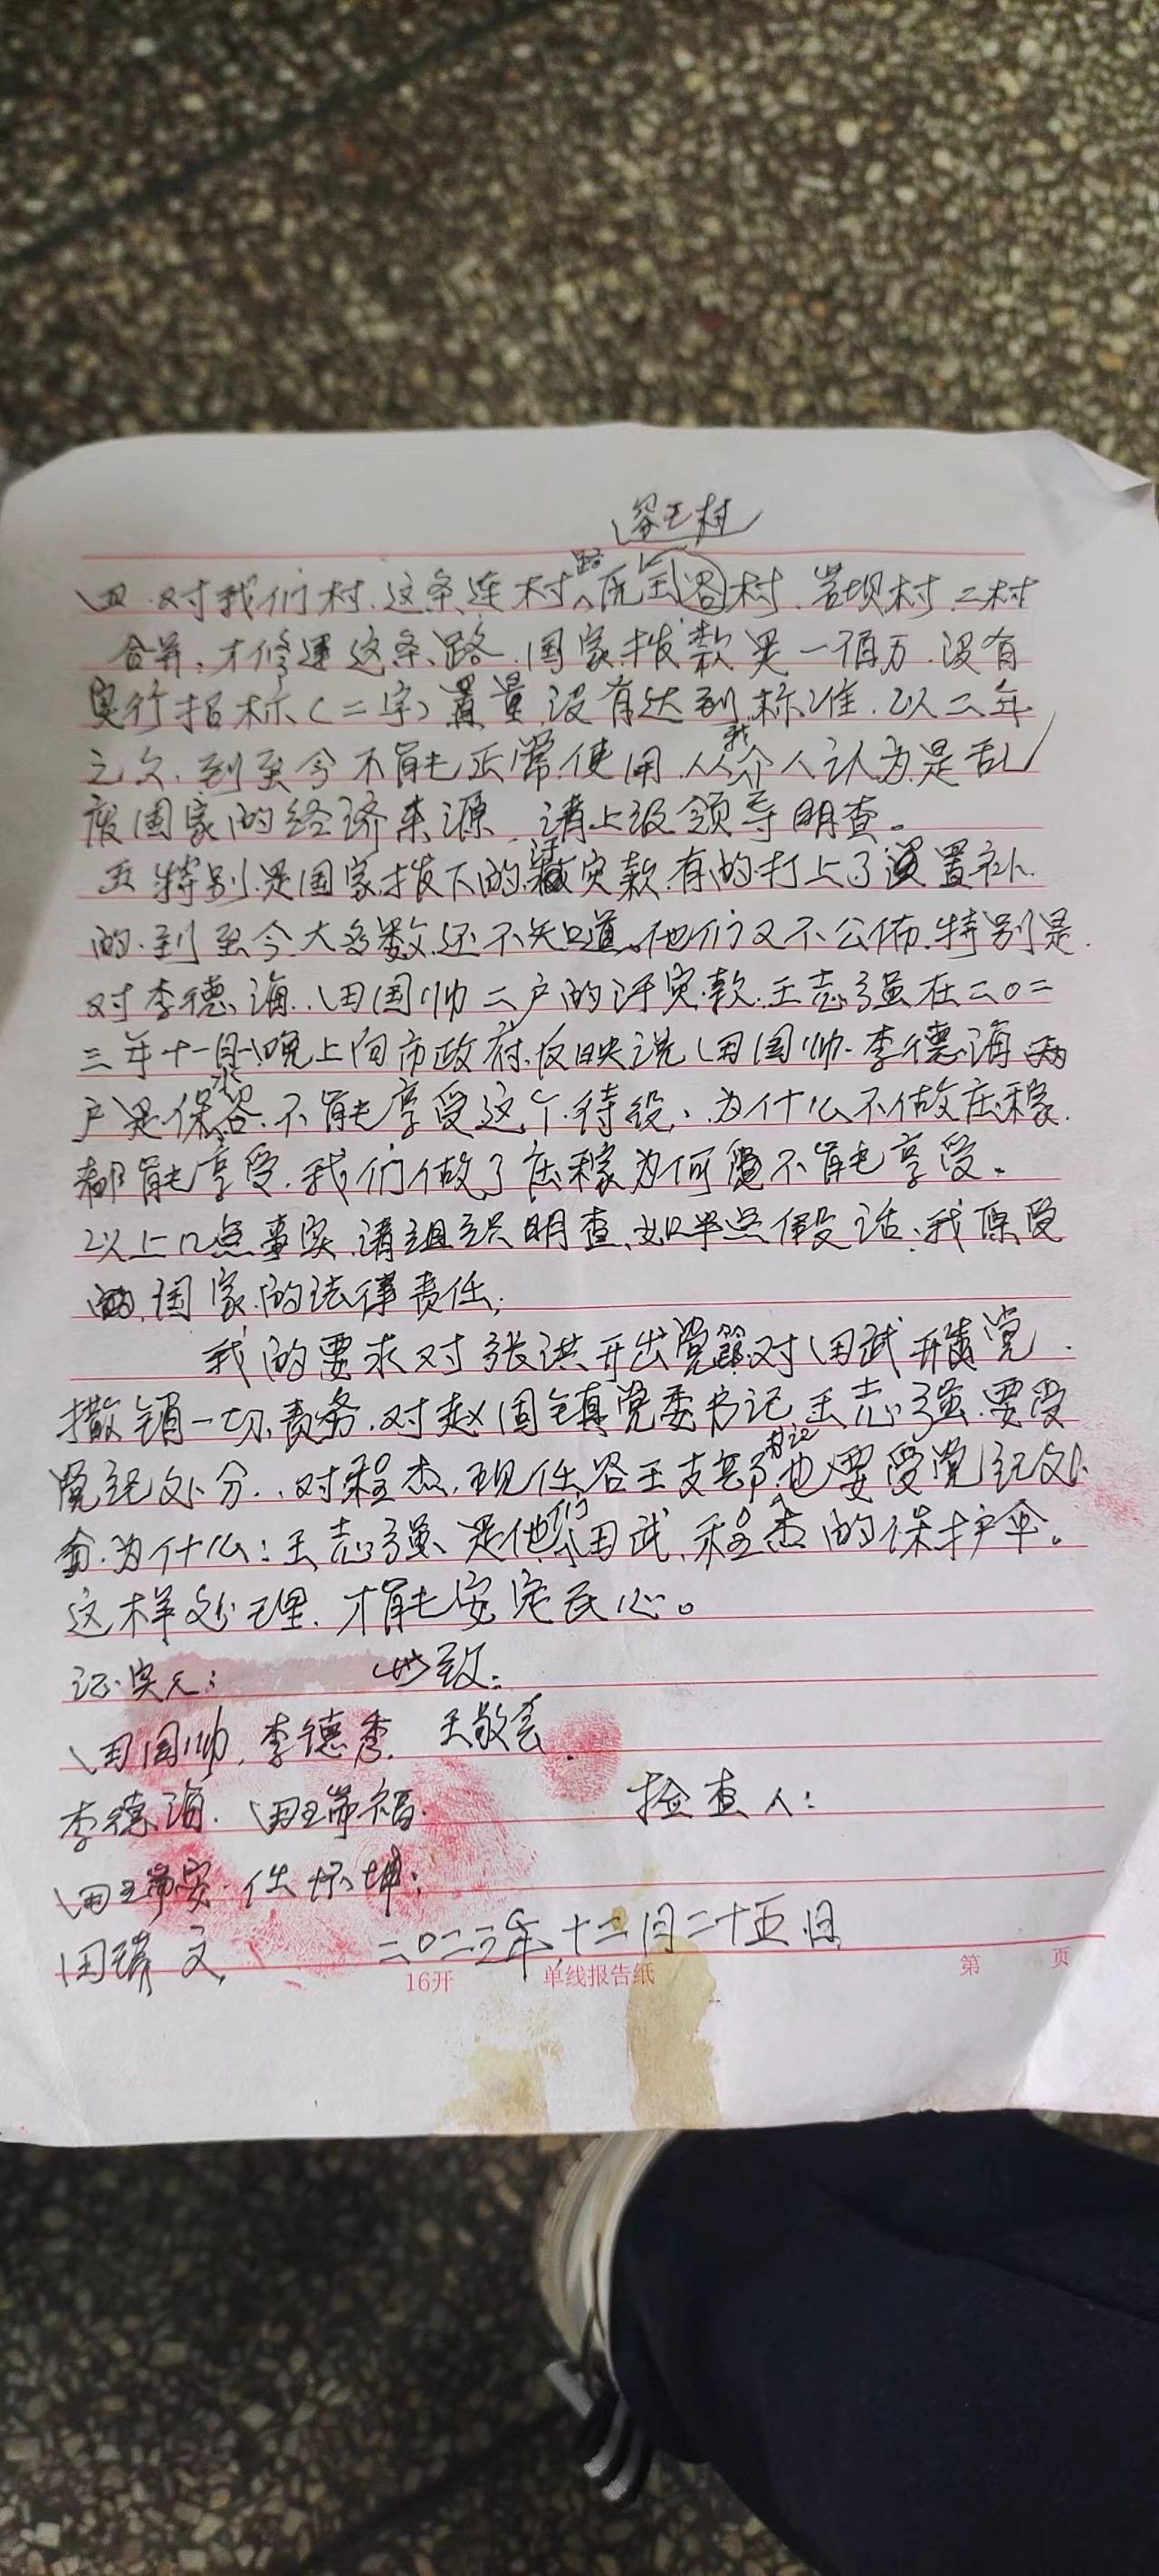 容王村
四.对我们村.这条连村路 容村.岩坝村.二村
合并.才修建这条路.国家拨款是一百万.没有
实行招标(二字)质量没有达到标准.以二年
之久.到至今不能正常使用.从我个人认为是乱
废国家的经济来源.请上级领导明查。
五特别是国家拨下的汗灾款有的打上了设置补.
的.到至今大多数还不知道.他们又不公佈.特别是.
对李德海.田国帅二户的汗灾款.王志强在二0二
三年十一月晚上向市政府反映说田国帅.李德海两
户是保 不能享受这个待役.为什么不做庄稼.
都能享受.我们做了庄稼为何不能享受。
以上几点事实请组织明查.如半点假话.我原受
国家的法律责任.
我的要求对张洪开出党籍对田武开出党.
撒销一切责务.对赵国镇党委书记王志强要受
党纪处分.对程杰.现任容王支部书记也要受党纪处
分.为什么:王志强是他们田武.程杰的保护伞。
这样处理.才能安定民心。
证实人: 此致:
田国帅.李德秀.王敬会.
李德海.田瑞福. 检查人:
田瑞实.任怀坤:
田瑞文. 二0二三年十二月二十五日
16开 单线报告纸 第 页